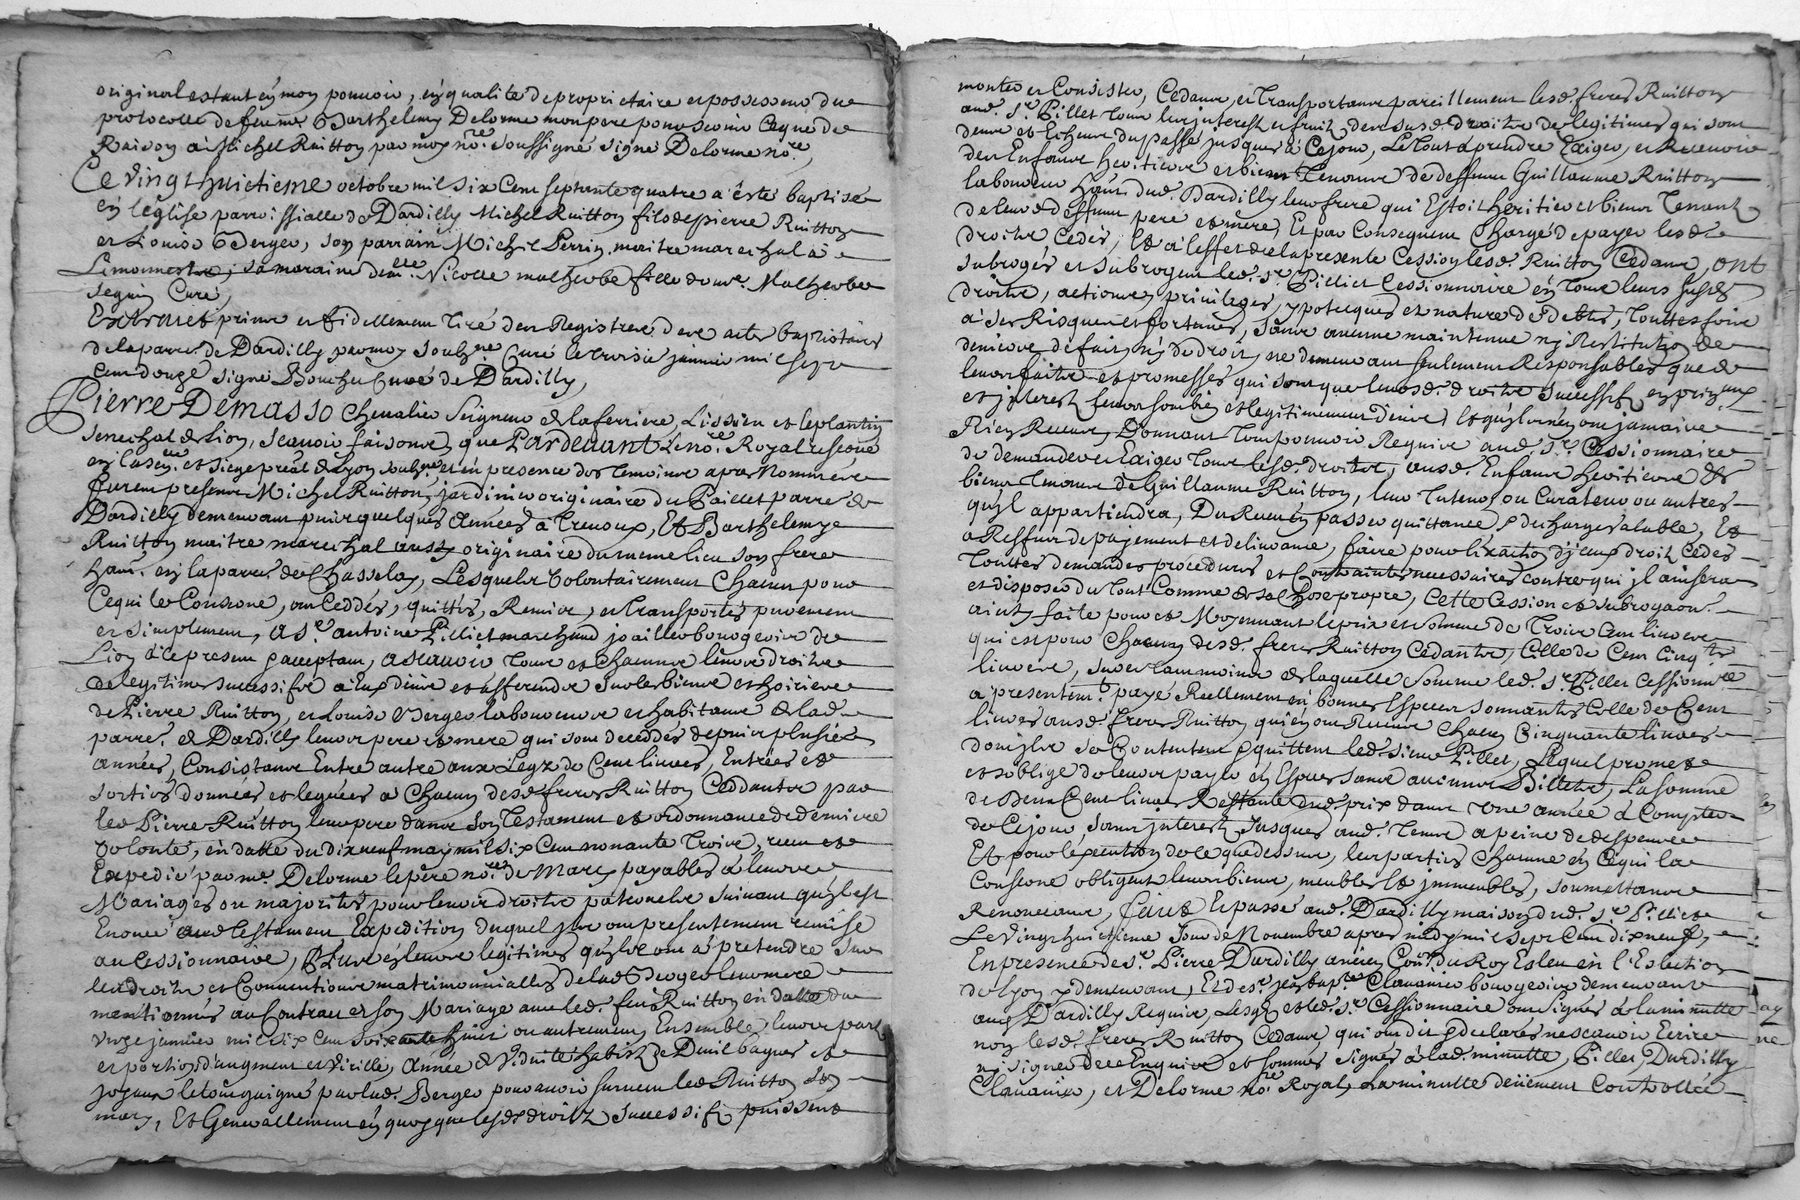 original estant en mon pouvoir, en qualité de proprietaire et possesseur du
protocolle de feu me Barthelemy Delorme mon pere pouvoir Ce que de
Raison a Michel Ruitton par moy no.re soussigné signé Delorme no.re,
Ce vingt huictieme octobre mil six Cent septante quatre a esté baptisé
en leglise parroissialle de Dardilly Michel Ruitton fils de pierre Ruitton
et Louise Berger, son parrain Michel Perrin maitre marechal à
Limonnest, sa maraine dem.lle Nicolle malherbe fille de mr. Malherbe
seguin Curé,
Extraict prins et fidellement tiré des Registres des actes baptistaires
de la parr. de Dardilly par moy soubz.né Curé le trois janvier mil sept
Cent douze signé Boucher Curé de Dardilly,
Pierre Demasso Chevalier Seigneur de la ferriere, Lissieu et le plantin
Senechal de Lion, scavoir faisons que Pardevant Le no.re Royal reservé
en la sen.ée et siege pre.al de Lyon soub.né et en presence des temoins apres Nommés
furent presens Michel Ruitton, jardinier originaire du Paillet parr.e de
Dardilly demeurant puis quelques années à trevoux, Et Barthelemye
Ruitton maitre marechal aussy originaire du meme lieu son frere
hañt. en la parr.e de Chasselay, Lesquels volontairement Chacun pour
Ce qui les Concerne, ont Ceddés, quittés, Remis, et transportés purement
et simplement, a s.r antoine Pilliet marchand joaillier bourgeois de
Lion à ce present & acceptant, a scavoir tous et chacuns leurs droits
de legitimes successifs à Eux deüs et afferends sur les biens et hoiries
de Pierre Ruitton, et Louise Berger laboureurs et habitants de lad.
parr.e de Dardilly leurs pere et mere qui sont deceddés depuis plusieurs
années, Consistants Entre autre aux Legs de Cent livres, Entrées et
sorties données et leguées a Chacun desd. freres Ruitton Ceddants par
led. Pierre Ruitton leur pere dans son testament et ordonnance de derniere
volonté, en datte du dix neuf may mil six Cent nonante trois, receu et
Expedié par me. Delorme le père no.re de Marcy payables à leurs
Mariages ou majorités pour leurs droits paternels suivant qu'il est
Enoncé aud. testament Expedition duquel ils ont presentement remise
au Cessionnaire, Plus és leurs legitimes qu'ils ont a pretendre sur
les droits et Conventions matrimonialles de lad. Berger leur mere
mentionnés au Contrat de son Mariage avec led. feu Ruitton en datte du
unze janvier mil six Cent soixante huict ou autrement Ensemble leurs parts
et portions d'augment et virille, Année de Viduité habits de Deuil bagues et
joyaux le tout gaigné par lad. Berger pour avoir survecu led. Ruitton son
mary, Et Generallement en quoy que lesd. droits successifs puissent
monter et Consister, Cedants et transportants pareillement lesd. freres Ruitton
aud. s.r Pilliet tous les interests et fruits de susd. droits de legitimes qui sont
deues et Echeus du passé jusques à Ce jour, Le tout a prendre Exiger, et Recevoir
des Enfants heritiers et biens tenants de deffunt Guillaume Ruitton
laboureur hañt. dud. Dardilly leur frere qui Estoit heritier et biens tenant
de leursd. deffunts pere et mere, Et par Consequent Chargé de payer lesd.
droits Cedés, Et à l'effet de la presente Cession lesd. Ruitton Cedants, ont
subrogés et subrogent led. s.r Pilliet Cessionnaire en tous leurs susd.
droits, actions, privileges, ypotecques et nature de debtes, touttesfois
à ses Risques et fortunes, sans aucune maintenue ny Restitution de
deniers de fait ny de droit, ne demeurant seulement Responsables que de
leurs faits et promesses qui sont que leursd. droits successifs en principal
et interest leurs sont bien et legitimement deües, et qu'ils n'en ont jamais
Rien Receus, Donnant tout pouvoir Requis aud. s.r Cessionnaire
de demander et Exiger tous lesd. droits, ausd. Enfants heritiers et
biens tenants de Guillaume Ruitton, leur tuteur ou Curateur ou autres
qu'il appartiendra, Du Receu en passer quittance & decharge valable, Et
a Reffus de payement et delivrance, faire pour l'exaction d'iceux droits Cedés
touttes demandes procedures et Contraintes necessaires contre qui il avisera
et disposer du tout Comme de sa Chose propre, Cette Cession et subroga.on
ainsy faite pour et Moyennant le prix et somme de Trois Cent livres
qui est pour Chacun desd. freres Ruitton Cedants, Celle de Cent Cinq.te
livres, sur et tant moins de laquelle somme led. s.r Pilliet Cessionn.re
a presentem.t payé Reellement en bonnes Especes sonnantes Celle de Cent
livres ausd. freres Ruitton qui en ont Receu Chacun Cinquante livres
dont ils se Contentent & quittent led. sieur Pilliet, Lequel promet
et s'oblige de leurs payer en Especes sans aucuns Billets, La somme
de Deux Cent livres Restante dud. prix dans une année à Compter
de Ce jour, sans interest jusques aud. terme a peine de despens
Et pour l'execution de ce que dessus, les parties Chacune en Ce qui la
Concerne obligent leurs biens, meubles et immeubles, soumettants
Renonceants, fait Et passé aud. Dardilly maison dud. s.r Pilliet
Le Vingt huictieme Jour de Novembre apres midy mil sept Cent dix neuf,
En presence de s.r Pierre Dardilly ancien Con.er du Roy Esleu en l'Eslection
de Lyon y demeurant, Et de s.r jean bap.te Clavaniés bourgeois demeurant
aud. Dardilly Requis, Lesq.ls et led. s.r Cessionnaire ont signés a la minutte
non lesd. freres Ruitton Cedants qui ont dit & declarés ne scavoir Ecrire
ny signer de ce Enquis et sommés signés à lad. minutte, Pilliet, Dardilly
Clavaniés, et Delorme no.re Royal, La minutte deuement Controllée